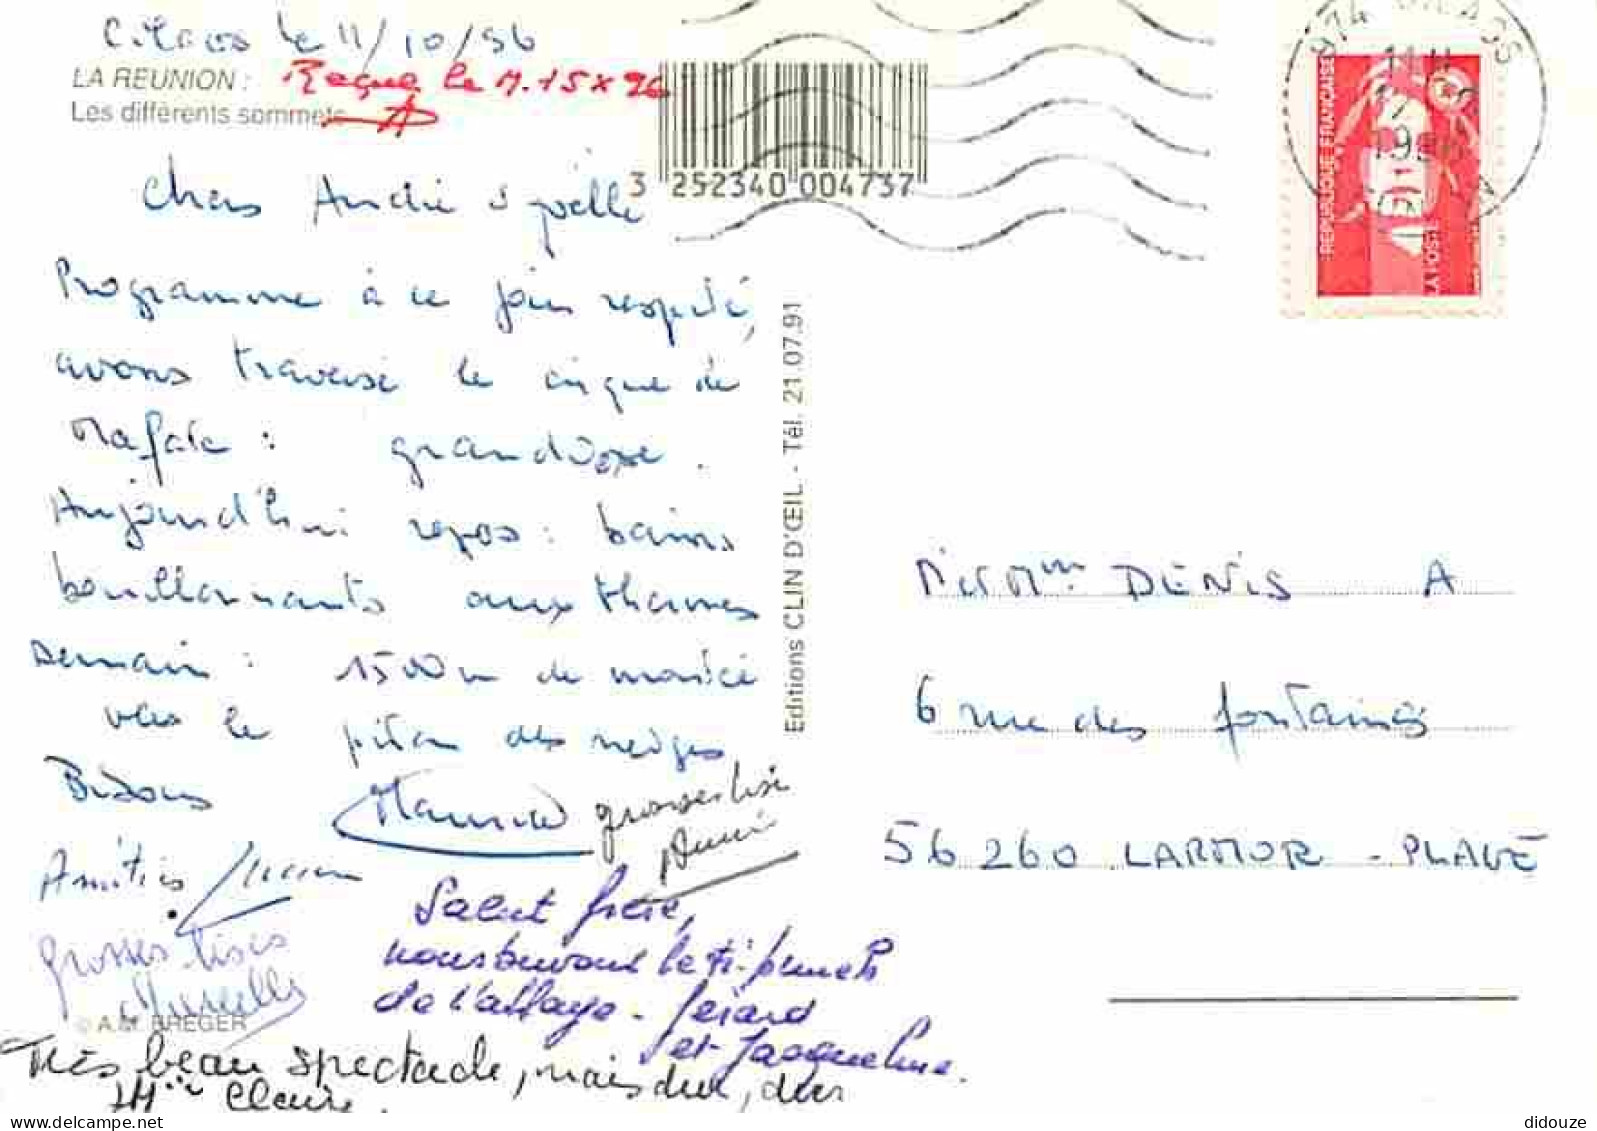 Cilaos le 11/10/96
LA REUNION :
Reçue le M. 15 x 96
Les différents sommets
3 252340 004737
974 CILAOS
14 H
1996
REPUBLIQUE FRANÇAISE
LA POSTE
Chers André &
Programme à ce jour respecté,
avons traversé le cirque de
Mafate : grandiose.
Aujourd'hui repos : bains
bouillonnants aux thermes
demain : 1500 m de montée
vers le piton des neiges
Bisous Maurice
grosses bises
Annie
Amitiés
grosses bises
Marcelle
Salut frère,
nous buvons le ti-punch
de l'abbaye. Gérard
et Jacqueline.
© A.M. BREGER
Très beau spectacle, mais dur, dur
M. Claire.
Editions CLIN D'ŒIL - Tél. 21.07.91
M et Mme DENIS A
6 rue des fontaines
56 260 LARMOR - PLAGE
didouze